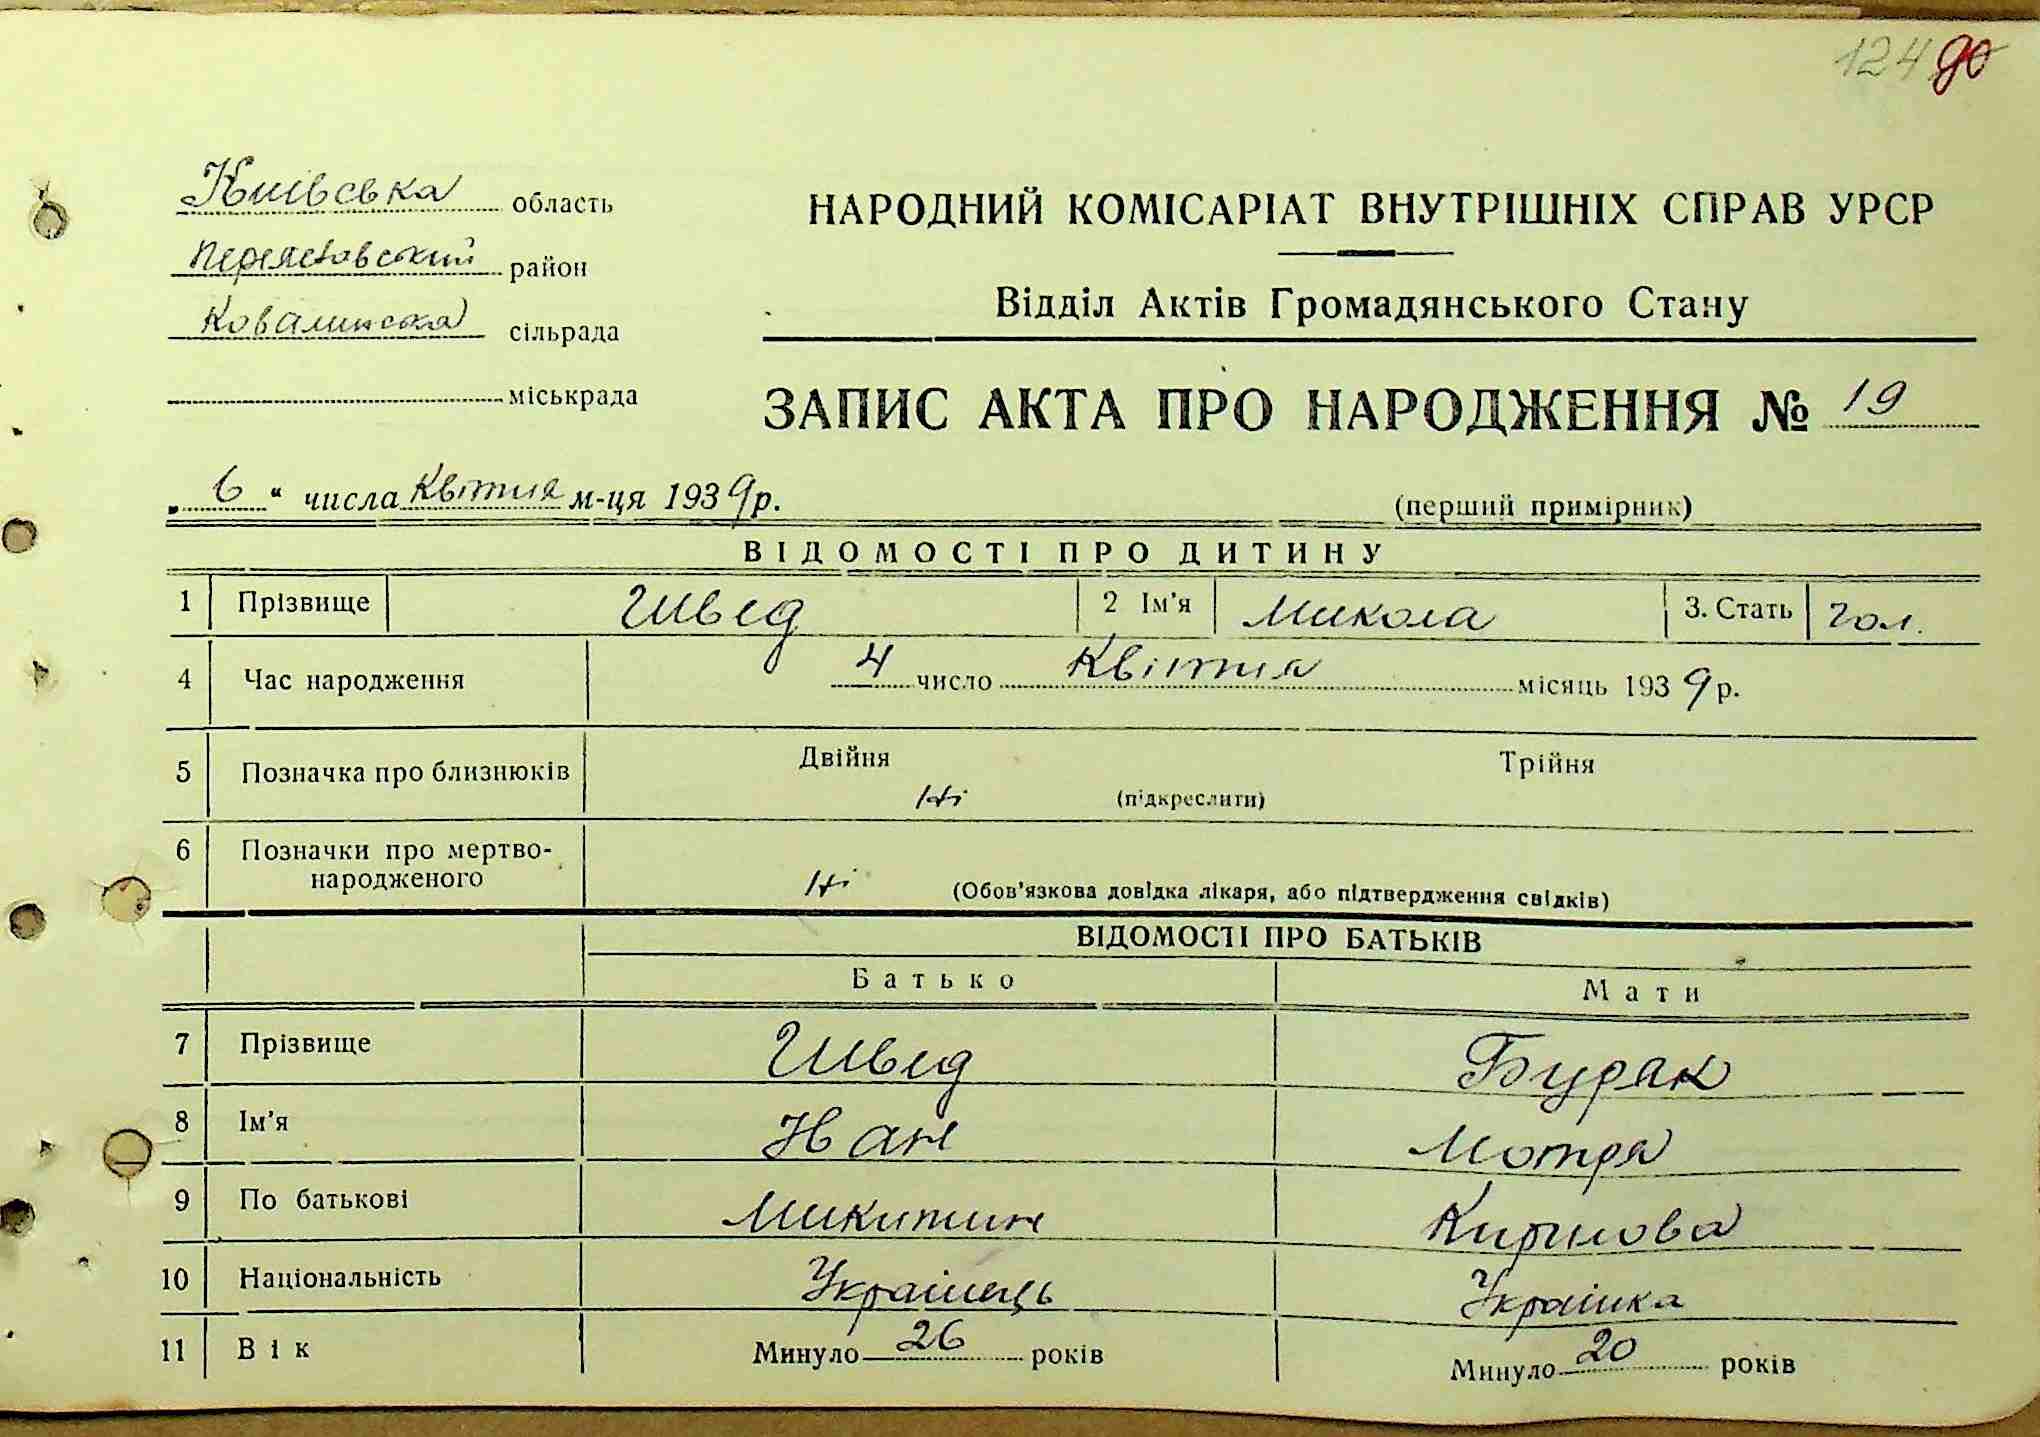 124 90
Київська область
Переяславський район
Ковалинська сільрада
міськрада
НАРОДНИЙ КОМІСАРІАТ ВНУТРІШНІХ СПРАВ УРСР
Відділ Актів Громадянського Стану
ЗАПИС АКТА ПРО НАРОДЖЕННЯ № 19
„ 6 “ числа Квітня м-ця 1939 р.
(перший примірник)
ВІДОМОСТІ ПРО ДИТИНУ
1 Прізвище Швед 2 Ім'я Микола 3. Стать чол.
4 Час народження 4 число Квітня місяць 1939 р.
5 Позначка про близнюків Двійня Трійня
Ні (підкреслити)
6 Позначки про мертво-
народженого Ні (Обов'язкова довідка лікаря, або підтвердження свідків)
ВІДОМОСТІ ПРО БАТЬКІВ
Батько Мати
7 Прізвище Швед Буряк
8 Ім'я Іван Мотря
9 По батькові Микитин Кирилова
10 Національність Українець Українка
11 Вік Минуло 26 років Минуло 20 років